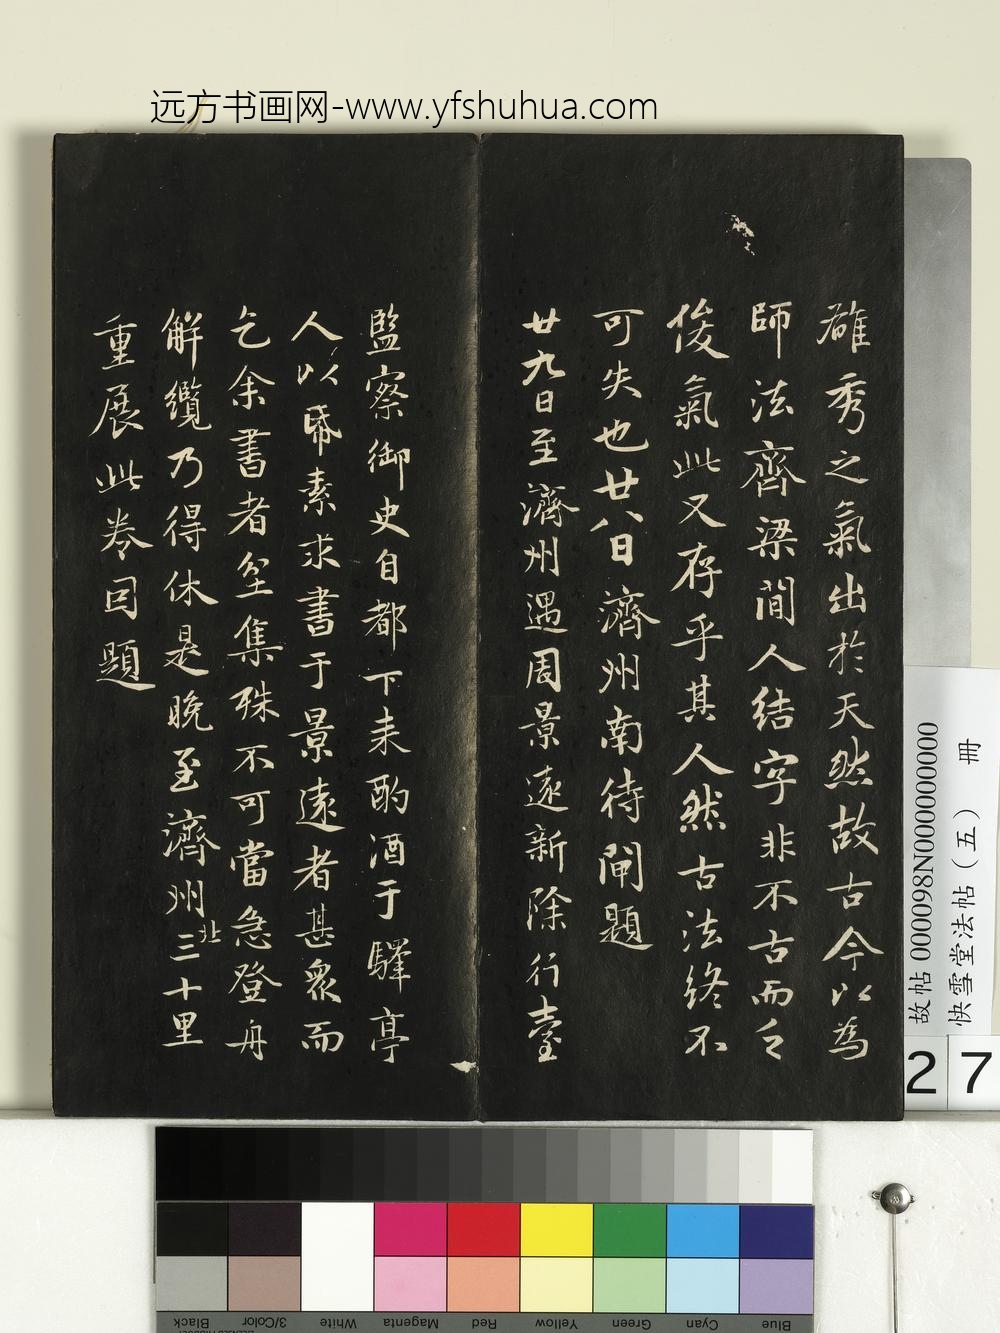 远方书画网-www.yfshuhua.com
雄秀之氣出於天然故古今以為
師法齊梁間人結字非不古而乏
俊氣此又存乎其人然古法終不
可失也廿八日濟州南待閘題
廿九日至濟州遇周景遠新除行臺
監察御史自都下来酌酒于驛亭
人以帋素求書于景遠者甚衆而
乞余書者坌集殊不可當急登舟
解纜乃得休是晚至濟州北三十里
重展此卷因題
故帖 000098N000000000
快雪堂法帖（五） 冊
27
Black
3/Color
White
Magenta
Red
Yellow
Green
Cyan
Blue